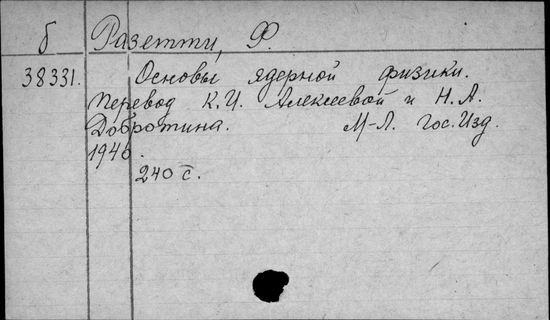 б Разетти, Ф.
38331. Основы ядерной физики.
Перевод К.И. Алексеевой и Н.А.
Добротина. М-Л. гос.Изд.
1940.
240 с.